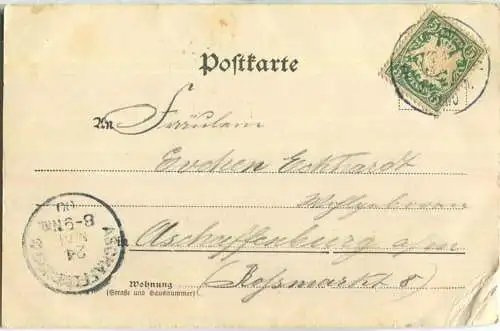 Postkarte
An Fräulein
Evchen Eckhardt
in Aschaffenburg a/m
Wohnung (Roßmarkt 8)
(Straße und Hausnummer)
ASCHAFFENBURG
24
8-9 Nm.
00
5 5